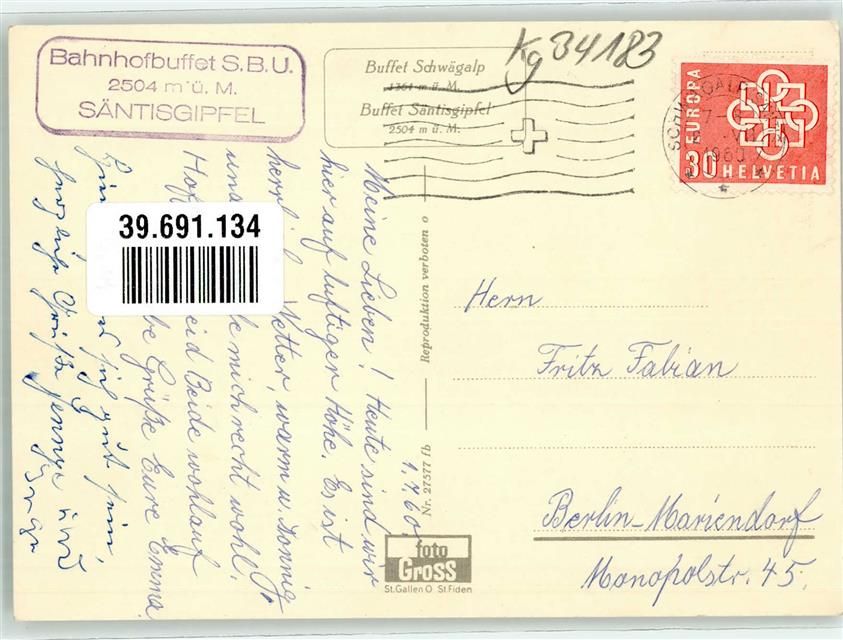 Bahnhofbuffet S.B.U.
2504 m ü. M.
SÄNTISGIPFEL
Buffet Schwägalp
1361 m ü. M.
Buffet Säntisgipfel
2504 m ü. M.
Kg 34183
EUROPA
30 HELVETIA
1960
39.691.134
1.7.60.
Meine Lieben! Heute sind wir
hier auf luftiger Höhe. Es ist
herrlich Wetter, warm u. sonnig
und mich recht wohl.
Hof Beide wohlauf
Grüße Eure Emma.
gut sein,
herzliche Grüße und
Reproduktion verboten
Nr. 27577 fb
foto
GROSS
St.Gallen O St.Fiden
Herrn
Fritz Fabian
Berlin-Mariendorf
Monopolstr. 45.